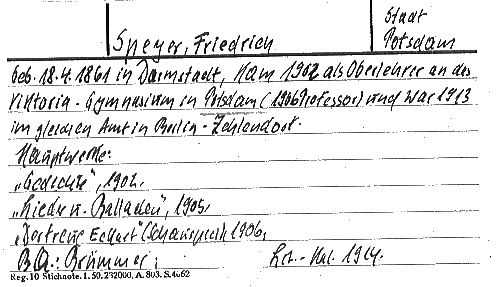 Stadt
Speyer, Friedrich Potsdam
Geb. 18.4.1861 in Darmstadt, kam 1902 als Oberlehrer an das
Viktoria-Gymnasium in Potsdam (1906 Professor) und war 1913
im gleichen Amt in Berlin-Zehlendorf.
Hauptwerke:
„Gedichte", 1902.
„Lieder u. Balladen", 1905.
„Der treue Eckart" (Schauspiel) 1906.
B.A.: Brümmer; Lit.-Kal. 1914.
Reg. 10 Stichnote. I. 50. 232000, A. 803. S. 4662